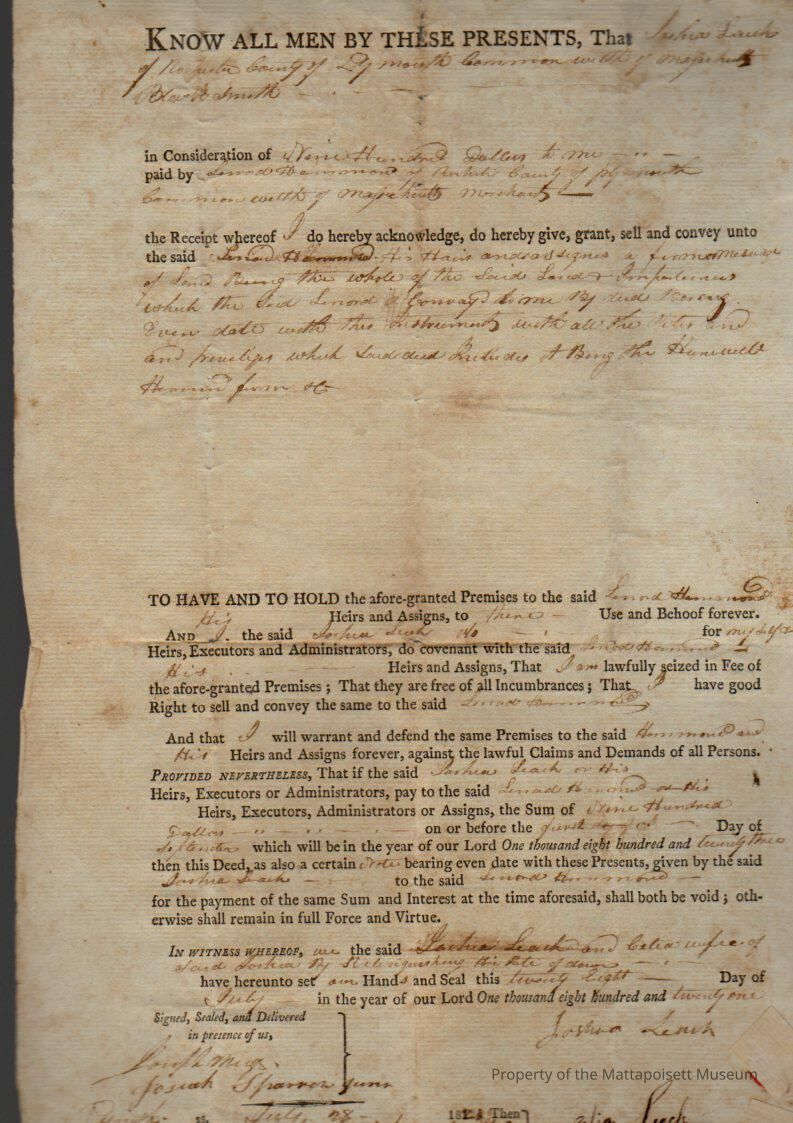 KNOW ALL MEN BY THESE PRESENTS, That Joshua Leach
of Rochester County of Plymouth Common welth of
Black Smith
in Consideration of Nine Hundred Dollars to me
paid by Lenord Hammond of County of Plymouth
Common welth of merchant
the Receipt whereof I do hereby acknowledge, do hereby give, grant, sell and convey unto
the said Lenord Hammond His Heirs and assignes a
of Land Being the whole of the Said Land &
which the Said Lenord Convayd to me By deed Bareing
Even date with this Instrument with all the and
and priveliges which Said deed Includes it Being the
Hammond farm &c
TO HAVE AND TO HOLD the afore-granted Premises to the said Lenord Hammond
His Heirs and Assigns, to there Use and Behoof forever.
AND I the said Joshua Leach do for my Self &
Heirs, Executors and Administrators, do covenant with the said Lenord Hammond &
His Heirs and Assigns, That I am lawfully seized in Fee of
the afore-granted Premises ; That they are free of all Incumbrances ; That I have good
Right to sell and convey the same to the said Lenord Hammond
And that I will warrant and defend the same Premises to the said Hammond and
His Heirs and Assigns forever, against the lawful Claims and Demands of all Persons.
PROVIDED NEVERTHELESS, That if the said Joshua Leach or His
Heirs, Executors or Administrators, pay to the said Lenord Hammond or His
Heirs, Executors, Administrators or Assigns, the Sum of Nine Hundred
Dollars on or before the Day of
which will be in the year of our Lord One thousand eight hundred and twenty three
then this Deed, as also a certain note bearing even date with these Presents, given by the said
Joshua Leach to the said Lenord Hammond
for the payment of the same Sum and Interest at the time aforesaid, shall both be void ; oth-
erwise shall remain in full Force and Virtue.
IN WITNESS WHEREOF, we the said Joshua Leach and Celia wife of
Said Joshua By Relinquishing the
have hereunto set our Hands and Seal this twenty Eight Day of
July in the year of our Lord One thousand eight hundred and twenty one
Signed, Sealed, and Delivered
in presence of us,
Joshua Leach
Joseph
Josiah Sparrow
Property of the Mattapoisett Museum
ss. July 28 1821 Then
Leach